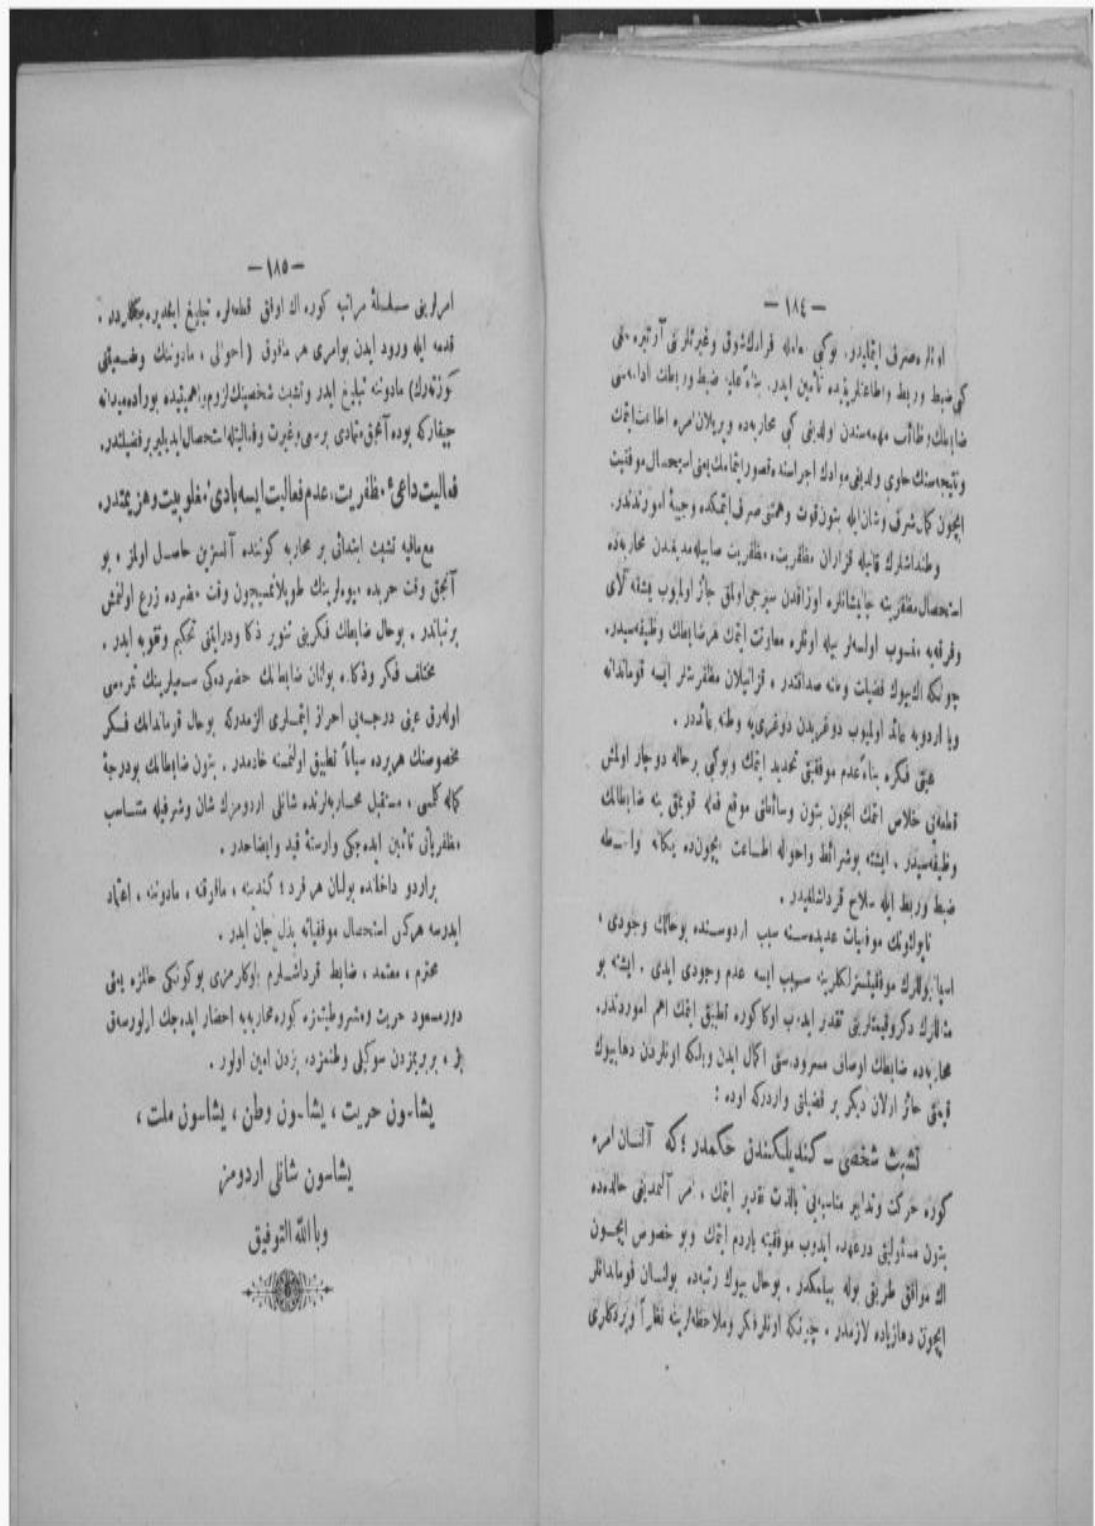 — ١٨٤ —
اونلره صرف ايتمليدر. بوكبى معامله قرارلك شوق وغيرتلرينى آرتيره جغى
كبى ضبط وربط واطاعتلرينى ده تأمين ايدر. بناءً عليه ضبط وربطك ادامه سى
ضابطك وظائف مهمه سندن اولديغى كبى محاربه ده ويريلان امره اطاعت ايتمك
ونتيجه سنك حاوى اولديغى موادك اجراسنده قصور ايتمامك يعنى استحصال موفقيت
ايچون كمال شرف وشان ايله بتون قوت وهمتنى صرف ايتمكده وجيبۀ اموردندر.
وطنداشلرك قانيله قزانلان مظفريت، مظفريت محاربه ده
استحصال مظفريته چاليشانلره اوزاقدن سيرجى اولمق جائز اولميوب بشقه آلاى
وفرقه يه منسوب اولسه لر بيله اونلره معاونت ايتمك هر ضابطك وظيفه سيدر.
چونكه اك بيوك فضيلت وطنه صداقتدر ، قزانيلان مظفريتلر ايسه قوماندانه
ويا اردويه عائد اولميوب دوغريدن دوغرى يه وطنه عائددر .
عينى فكره بناءً عدم موفقيتى تحديد ايتمك وبوكبى برحاله دوچار اولمش
قطعه يى خلاص ايتمك ايچون بتون وسائطى موقع فعله قويمق ينه ضابطانك
وظيفه سيدر . ايشته بوشرائط واحواله اطاعت ايچون ده يكانه واسطه
ضبط وربط ايله سلاح قرداشلغيدر .
ناپوليونك موفقيات عديده سنه سبب اردوسنده بوحالك وجودى ،
اسپانيوللرك موفقيتسزلكلرينه سبب ايسه عدم وجودى ايدى . ايشته بو
مثاللرك دكر وقيمتلرينى تقدير ايدوب اوكا كوره تطبيق ايتمك اهم اموردندر.
محاربه ده ضابطك اوصاف مسروده سنى اكمال ايدن وبلكه اونلردن دها بيوك
قيمتى حائز اولان ديكر بر فضيلتى واردركه اوده :
تشبث شخصى ــ كنديلكندن حكمدر ؛ كه آلنان امره
كوره حركت وتدابير مناسبه يى بالذات تقدير ايتمك ، امر آلمديغى حالده ده
بتون مسئوليتى درعهده ايدوب موفقيته ياردم ايتمك وبو خصوص ايچون
اك موافق طريقى بوله بيلمكدر . بوحال بيوك رتبه ده بولنان قوماندانلر
ايچون دها زياده لازمدر . چونكه اونلر فكر وملاحظه لرينه نظراً ويردكلرى
— ١٨٥ —
امرلرينى سلسلۀ مراتبه كوره اك اوفق قطعه لره تبليغ ايتديره جكلردر .
قدمه ايله ورود ايدن بوامرى هر مافوق (احوالى ، مادوننك وضعيتنى
كوزته رك) مادوننه تبليغ ايدر وتشبث شخصينك لزوم واهميتى ده بوراده ميدانه
چيقاركه بوده آنجق متمادى برسعى وغيرت وفعاليتله استحصال ايديلير بر فضيلتدر.
فعاليت داعىء مظفريت، عدم فعاليت ايسه بادىء مغلوبيت وهزيمتدر.
مع مافيه تشبث ابتدائى بر محاربه كوننده آنسزين حاصل اولمز ، بو
آنجق وقت حربده ميوه لرينك طوپلانمسيچون وقت حضرده زرع اولنمش
برنباتدر . بوحال ضابطك فكرينى تنوير ذكا ودرايتنى تحكيم وتقويه ايدر .
مختلف فكر وذكاده بولنان ضابطانك حضرده كى سعيلرينك ثمره سى
اوله رق عينى درجه يى احراز ايتملرى الزمدركه بوحال قوماندانك فكر
مخصوصنك هر يرده سياناً تطبيق اولنمسنه خادمدر . بتون ضابطانك بودرجۀ
كماله كلمسى ، مستقبل محاربه لرنده شانلى اردومزك شان وشرفيله متناسب
مظفرياتى تأمين ايده جكى وارستۀ قيد وايضاحدر .
براردو داخلنده بولنان هر فرد ؛ كندينه ، مافوقنه ، مادوننه ، اعتماد
ايدرسه هركس استحصال موفقياته بذل جان ايدر .
محترم ، معتمد ، ضابط قرداشلرم اوكلرمزى بوكونكى حالمزه يعنى
دورمسعود حريت ومشروطيتمزه كوره محاربه يه احضار ايده جك اولورسه ق
بز ، بربريمزدن سوكيلى وطنمزده بزدن امين اولور .
يشاسون حريت ، يشاسون وطن ، يشاسون ملت ،
يشاسون شانلى اردومز
وبالله التوفيق